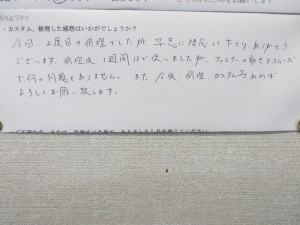 ・カスタム、修理した感想はいかがでしょうか?
今回、2度目の修理でしたが、早急に対応いただき、ありがとう
ございます。修理後1週間ほど使いましたが、ファスナーの動きもスムーズ
で何の問題もありません。また今後、修理、カスタム等あれば
よろしくお願い致します。